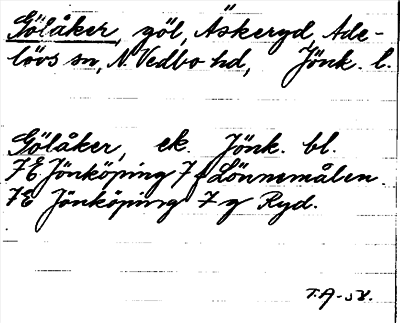 Gölåker, göl, Äskeryd, Ade-
lövs sn, N. Vedbo hd, Jönk. l.
Gölåker, ek. Jönk. bl.
7E Jönköping 7f Lönnemålen
7E Jönköping 7g Ryd.
T.A-58.